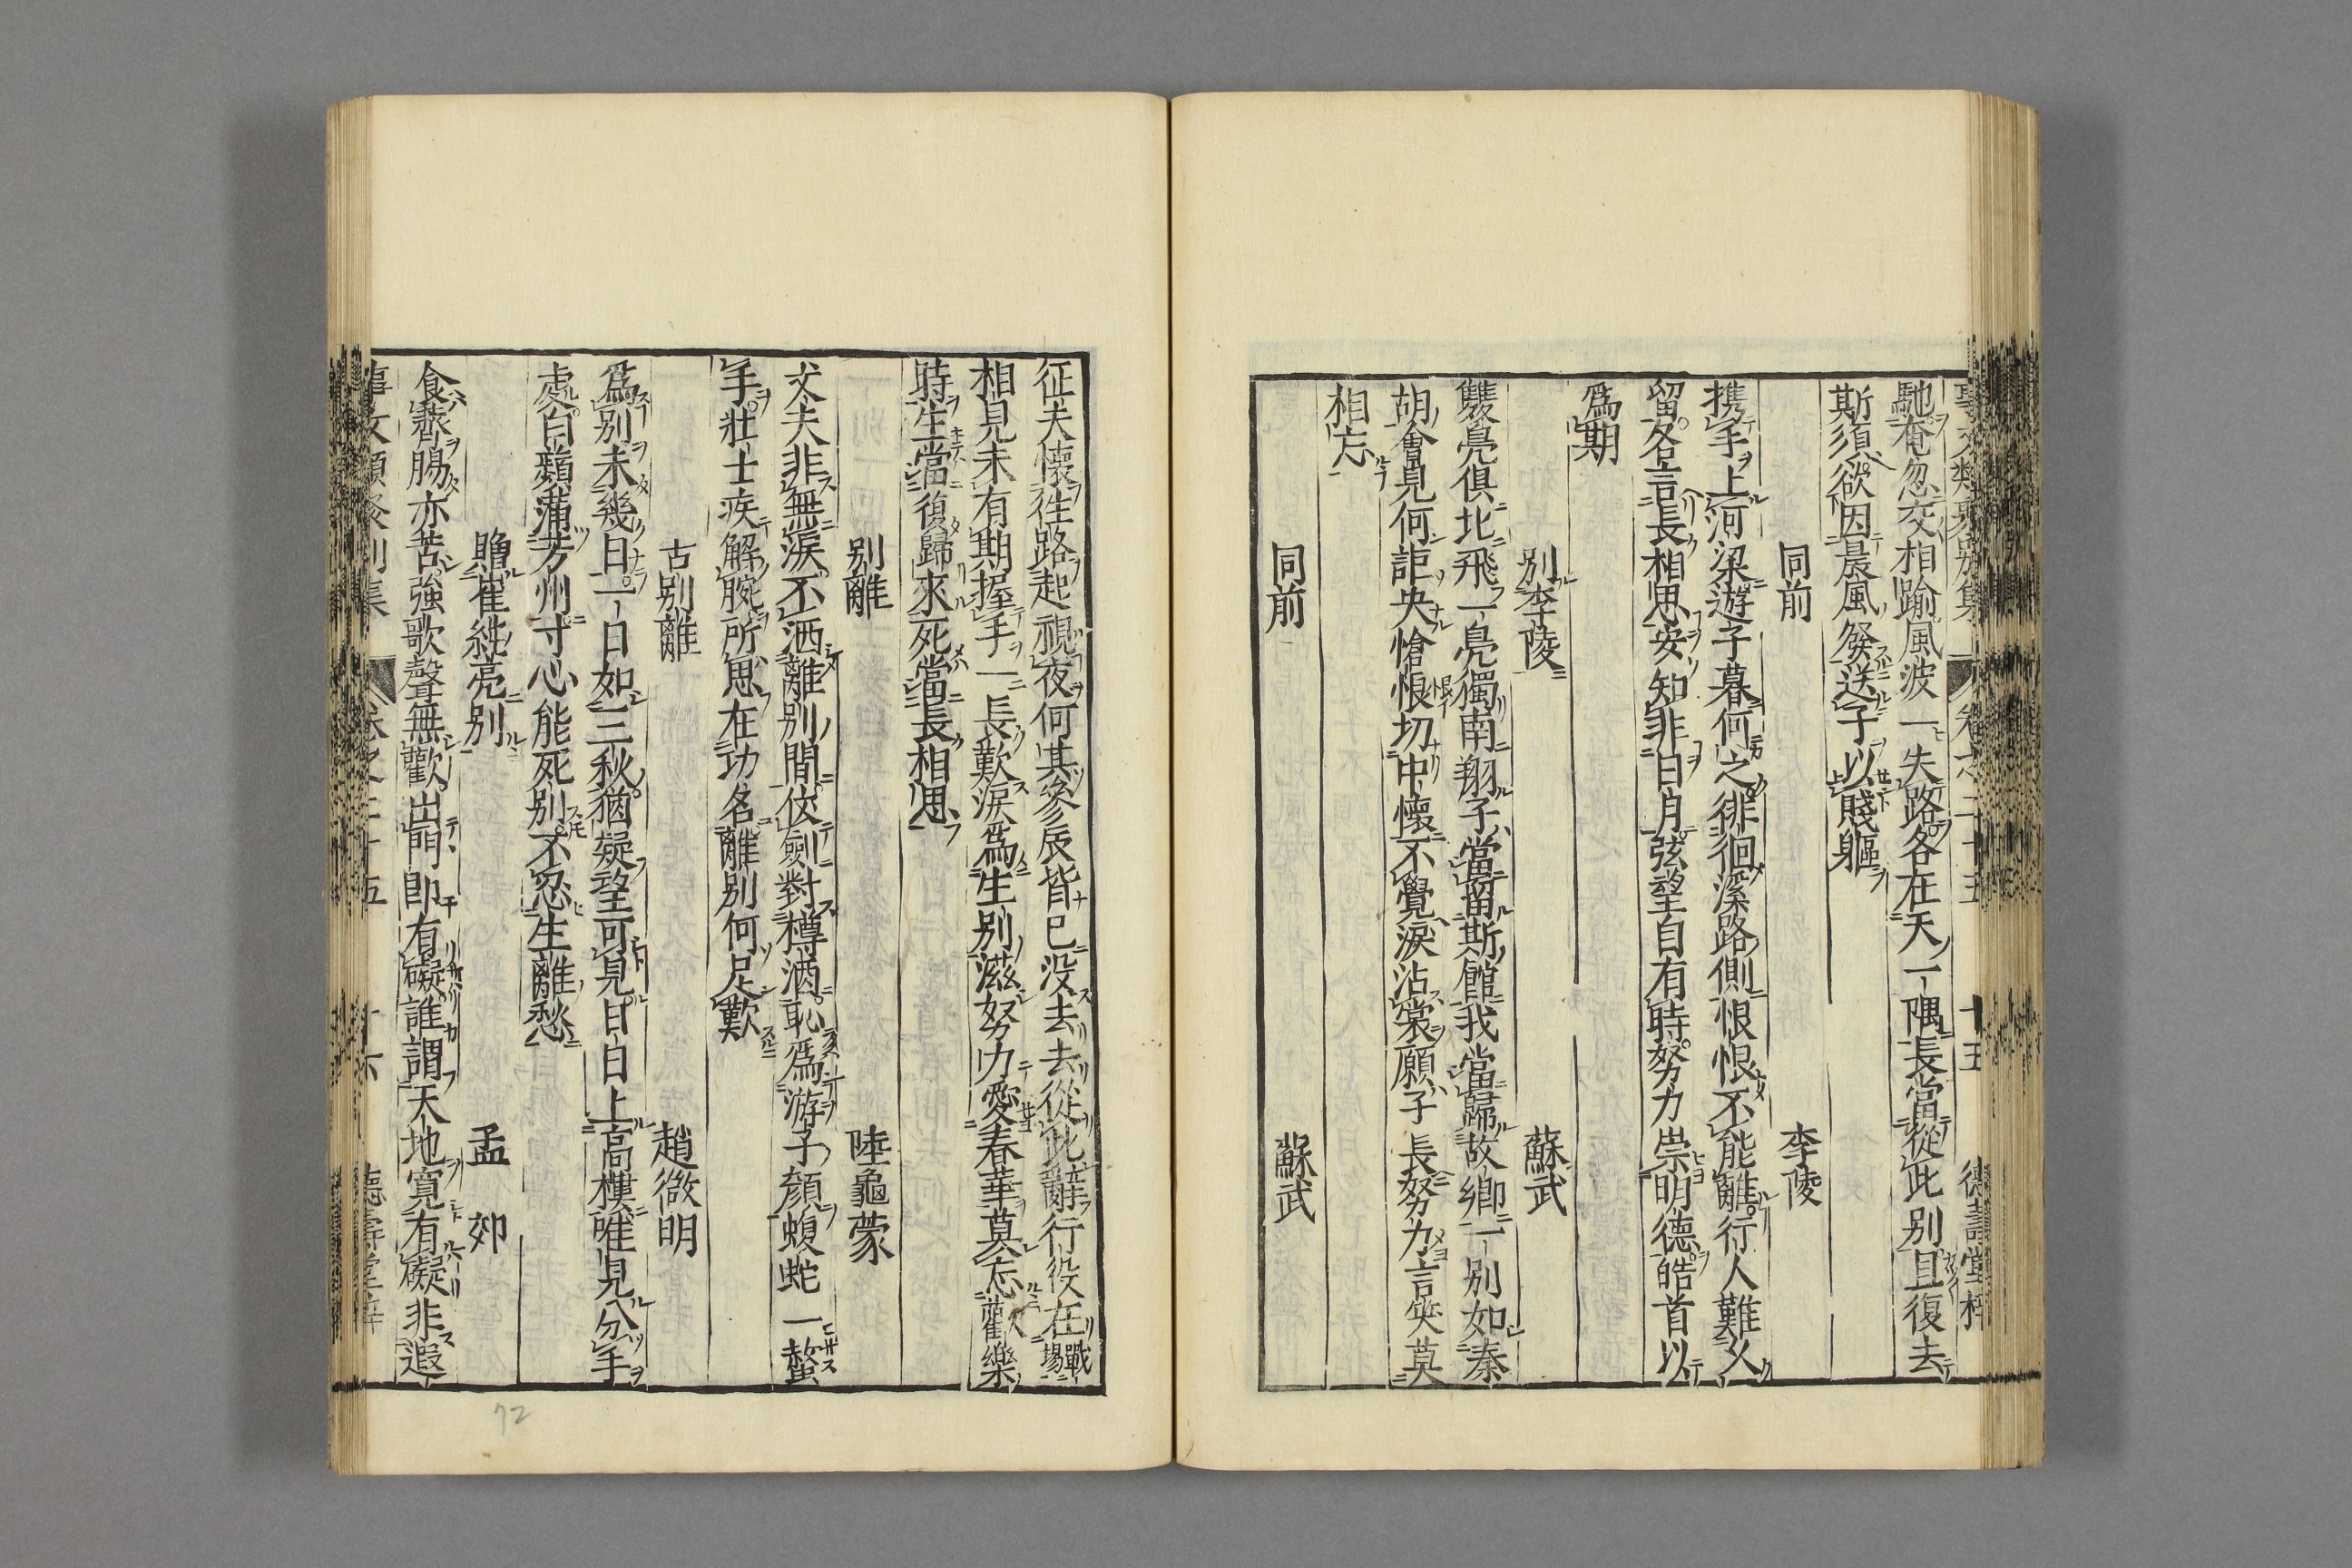 事文類聚別集 卷之二十五 十五 德壽堂梓
馳奄忽交相踰風波一失路各在天一隅長當從此別且復去
斯須欲因晨風發送子以賤軀
同前 李陵
携手上河梁遊子暮何之徘徊溪路側恨恨不能離行人難久
留各言長相思安知非日月弦望自有時努力崇明德皓首以
爲期
別李陵 蘇武
雙鳧俱北飛一鳧獨南翔子當留斯館我當歸故鄉一別如秦
胡會見何詎央愴恨切中懷不覺淚沾裳願子長努力言笑莫
相忘
同前 蘇武
征夫懷往路起視夜何其參辰皆已没去去從此辭行役在戰場
相見未有期握手一長歎淚爲生别滋努力愛春華莫忘歡樂
時生當復歸來死當長相思
別離 陸龜蒙
丈夫非無淚不洒離別間仗劍對樽酒恥爲游子顏蝮蛇一螫
手壯士疾解腕所思在功名離別何足歎
古別離 趙微明
爲別未幾日一日如三秋猶疑望可見日日上高樓唯見分手
處白蘋蒲芳州寸心能死別不忍生離愁
贈崔純亮別 孟郊
食薺腸亦苦強歌聲無歡出門即有礙誰謂天地寛有礙非遐
事文類聚別集 卷之二十五 十六 德壽堂梓